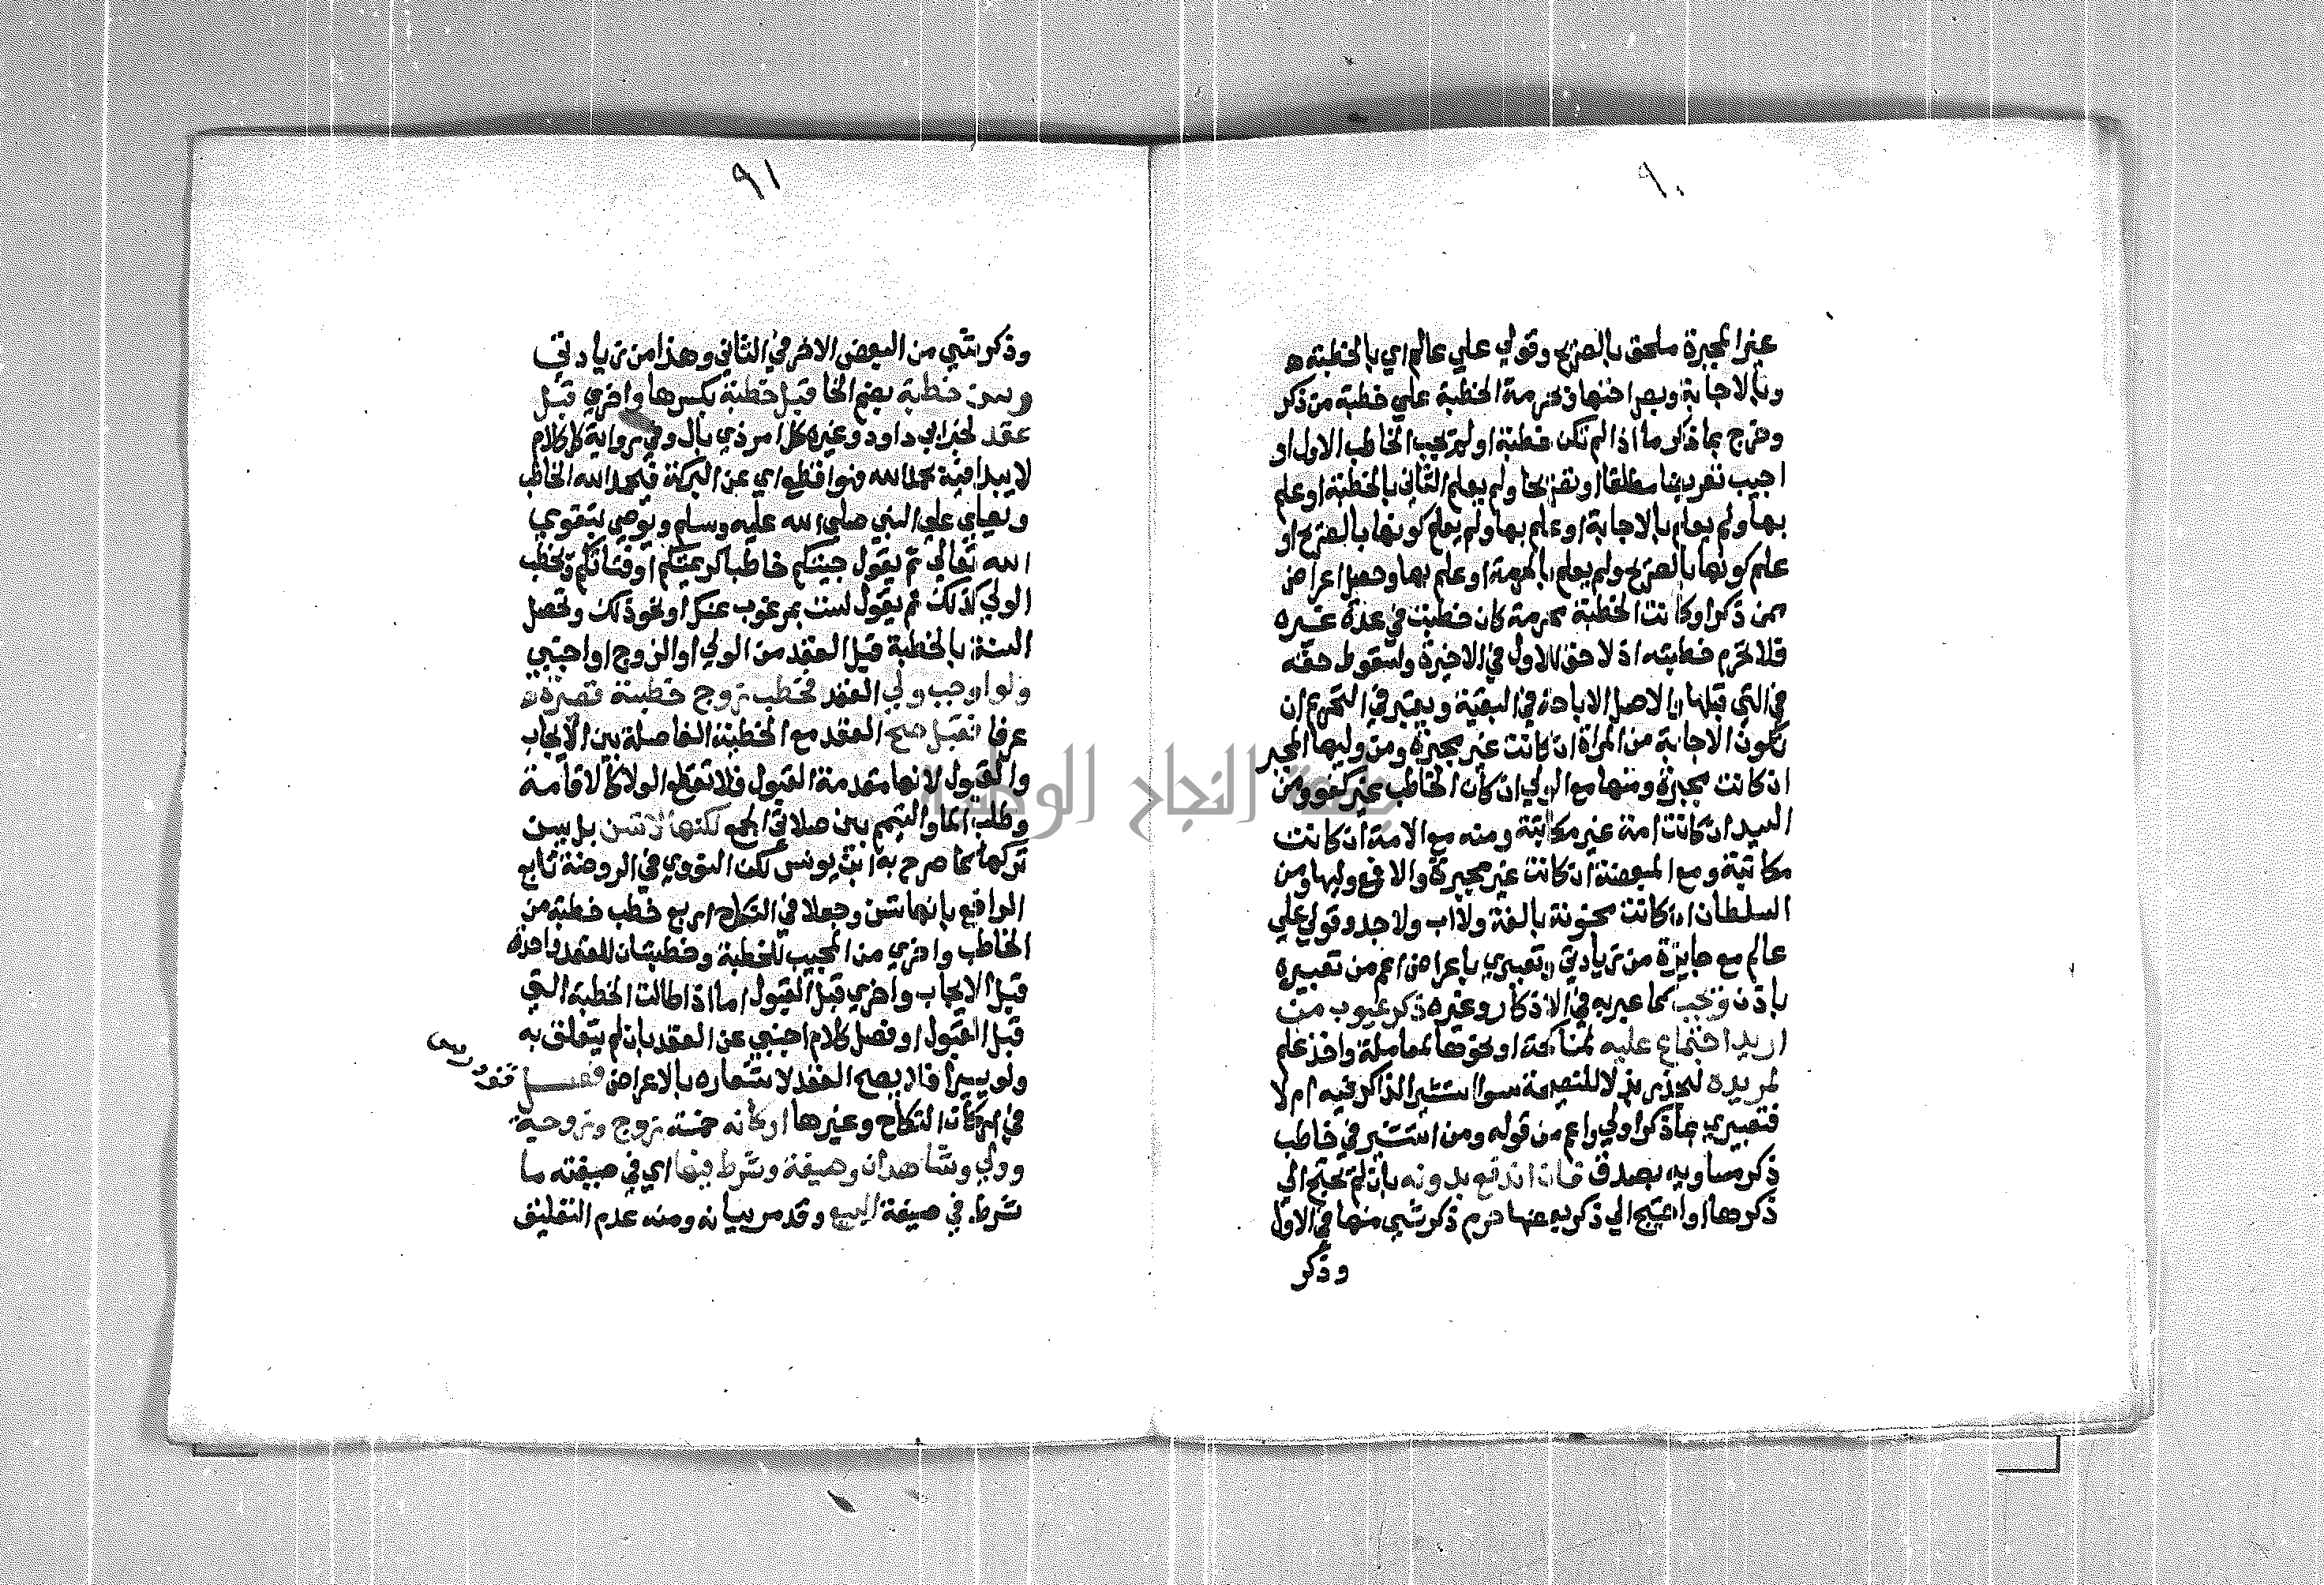 ٩٠
غير المجبرة ملحق بالصريح وقولي علي عالم اي بالخطبة
وبالاجابة وبصراحتها فتحرم الخطبة علي خطبة من ذكر
وخرج بما ذكر ما اذا لم تكن خطبة اولم يجب الخاطب الاول او
اجيب تعريضا مطلقا او تصريحا ولم يعلم الثاني بالخطبة او علم
بها ولم يعلم بالاجابة او علم بها ولم يعلم كونها بالصريح او
علم كونها بالصريح ولم يعلم بالحرمة او علم بها وحصل اعراض
ممن ذكر او كانت الخطبة محرمة كان خطبت في عدة غيره
فلا تحرم خطبته اذ لا حق للاول في الاخيرة ولسقوط حقه
في التي قبلها والاصل الاباحة في البقية ويعتبر في التحريم ان
تكون الاجابة من المراة ان كانت غير مجبرة ومن وليها المجبر
ان كانت مجبرة ومنها مع الولي ان كان الخاطب غير كفو ومن
السيد ان كانت امة غير مكاتبة ومنه مع الامة ان كانت
مكاتبة ومع المبعضة ان كانت غير مجبرة والا فمع وليها ومن
السلطان ان كانت مجنونة بالغة ولا اب ولا جد وقولي علي
عالم مع جايزة من زيادتي وتعبيري باعراض اعم من تعبيره
باذن وتجب كما عبر به في الاذكار وغيره ذكر عيوب من
اريد اجتماع عليه لمناكحة او نحوها لمعاملة واخذ علم
لمريده ليحذر بذلا للنصيحة سوا استشير الذاكر فيه ام لا
فتعبيري بما ذكر اولي واعم من قوله ومن استشير في خاطب
ذكر مساويه بصدق فان اندفع بدونه بان لم يحتج الي
ذكرها او احتيج الي ذكر بعضها حرم ذكر شي منها في الاول
وذكر
٩١
وذكر شي من البعض الاخر في الثاني وهذا من زيادتي
وسن خطبة بضم الخا قبل خطبة بكسرها واخري قبل
عقد لخبر ابي داود وغيره كل امر ذي بال وفي رواية كل كلام
لا يبدا فيه بحمد الله فهو اقطع اي عن البركة فيحمد الله الخاطب
ويصلي علي النبي صلي الله عليه وسلم ويوصي بتقوي
الله تعالي ثم يقول جيتكم خاطبا كريمتكم او فتاتكم ويخطب
الولي كذلك ثم يقول لست بمرغوب عنك او نحو ذلك وتحصل
السنة بالخطبة قبل العقد من الولي او الزوج او اجنبي
ولو اوجب ولي العقد فخطب زوج خطبة قصيرة
عرفا فقبل صح العقد مع الخطبة الفاصلة بين الايجاب
والقبول لانها مقدمة القبول فلا تقطع الولا كالاقامة
وطلب الما والتيمم بين صلاتي الجمع لكنها لا تسن بل يسن
تركها كما صرح به ابن يونس لكن النووي في الروضة تابع
الرافعي بانها تسن وجعلا في النكاح اربع خطب خطبة من
الخاطب واخري من المجيب للخطبة وخطبتان للعقد واحدة
قبل الايجاب واخري قبل القبول اما اذا طالت الخطبة التي
قبل القبول او فصل كلام اجنبي عن العقد بان لم يتعلق به
ولو يسيرا فلا يصح العقد لاشعاره بالاعراض فصل
في اركان النكاح وغيرها اركانه خمسة زوج وزوجة
وولي وشاهدان وصيغة وشرط فيها اي في صيغته ما
شرط في صيغة البيع وقد مر بيانه ومنه عدم التعليق
جامعة النجاح الوطنية